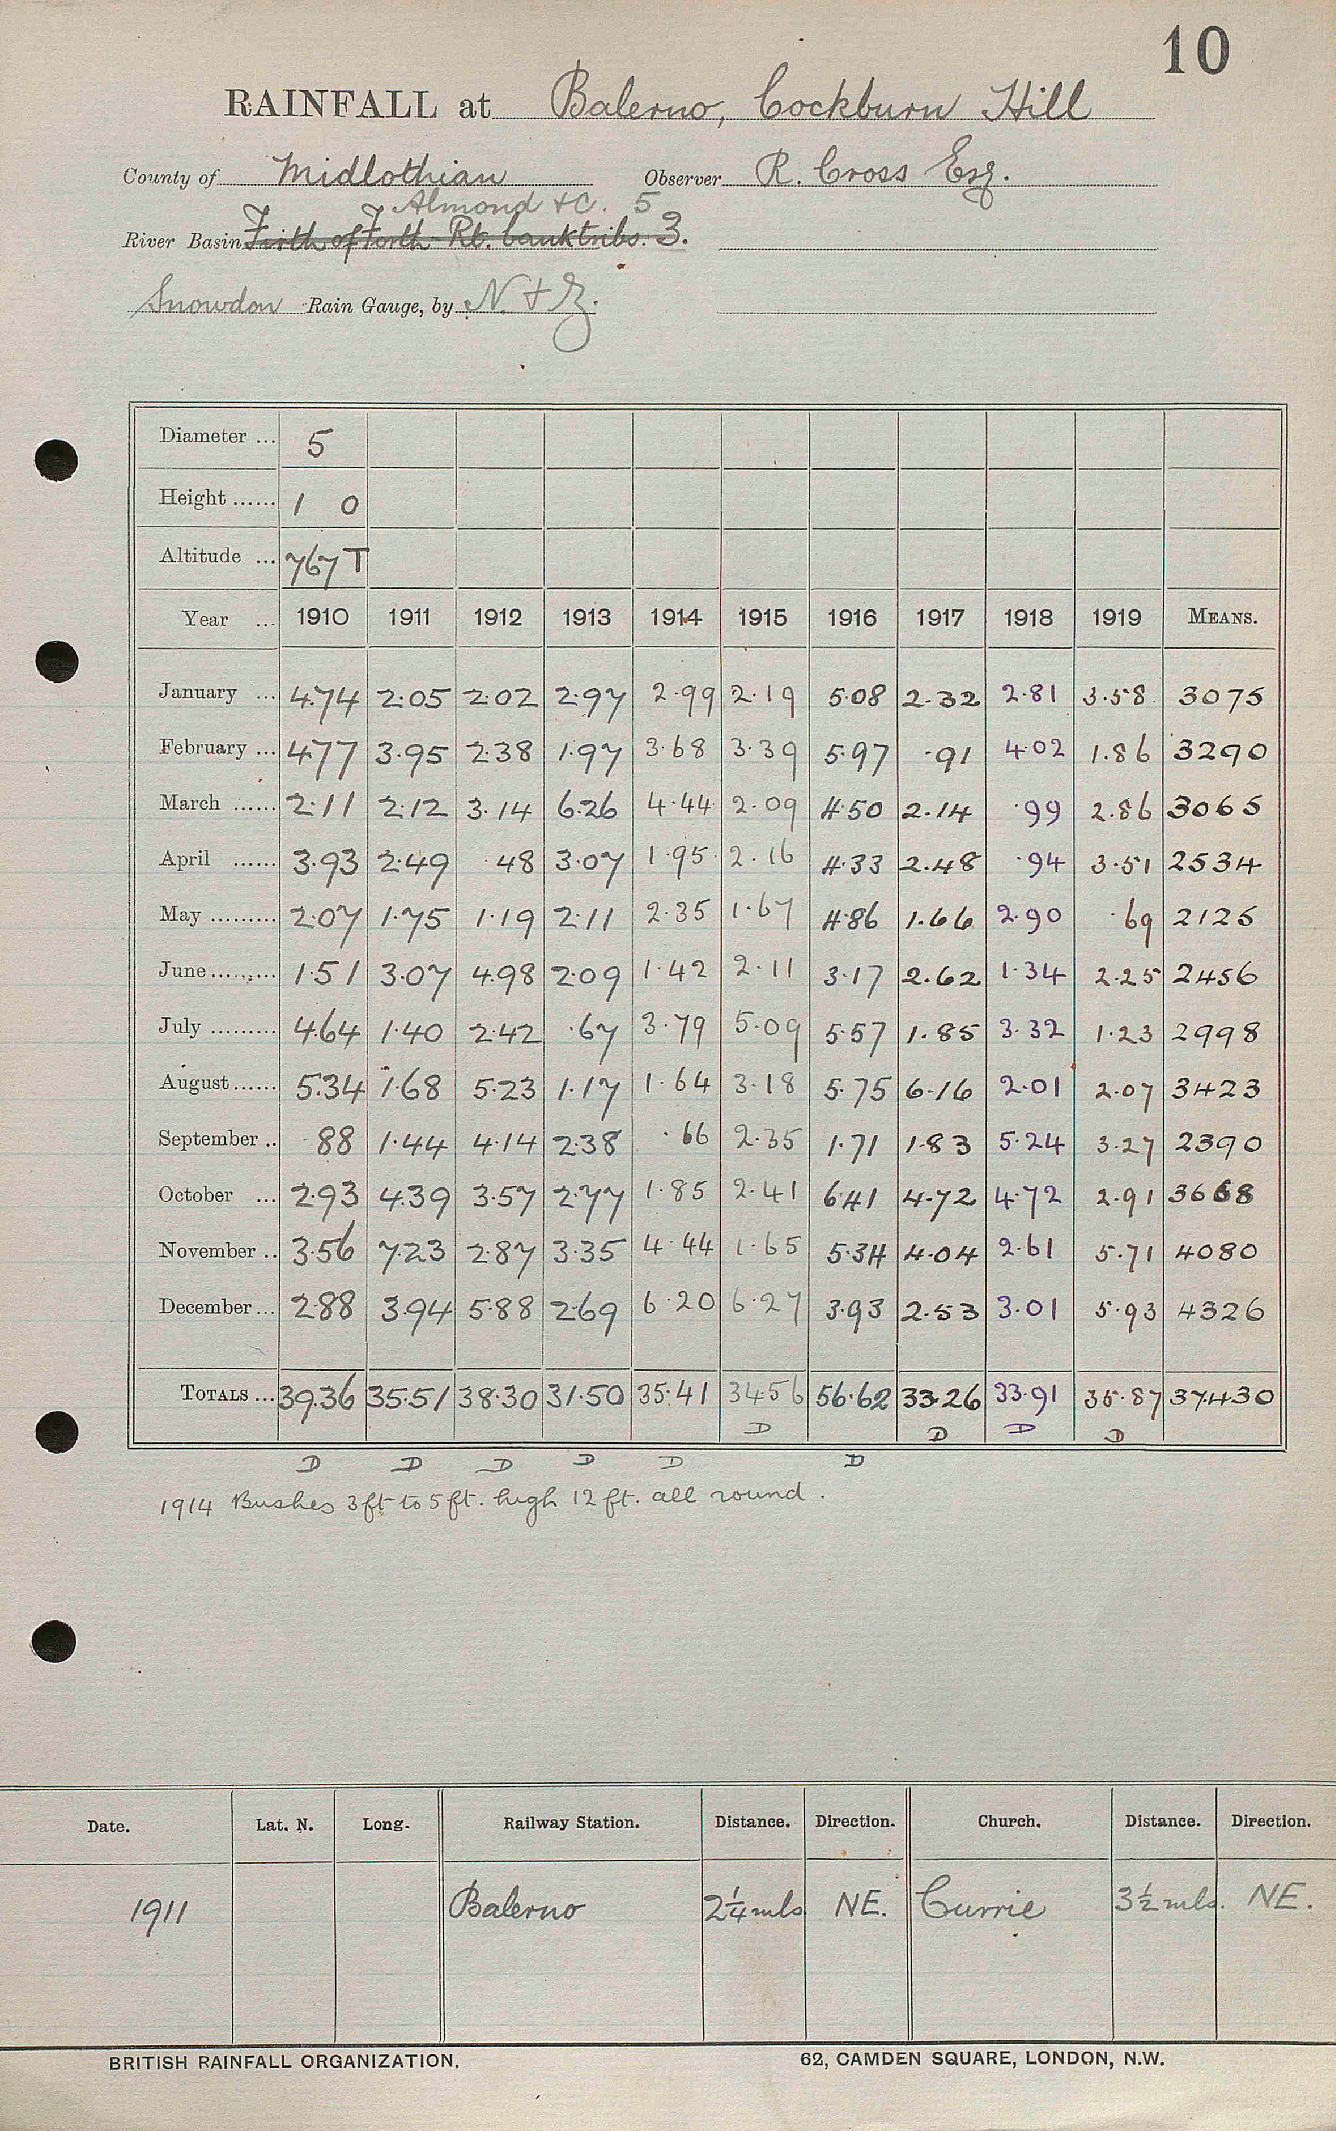 10
RAINFALL at Balerno, Cockburn Hill
County of Midlothian Observer R. Cross Esq.
Almond &c. 5
River Basin Firth of Forth Rt. bank tribs. 3.
Snowdon Rain Gauge, by N. & Z.
Diameter ... 5
Height ...... 1 0
Altitude ... 767 T
Year ... 1910 1911 1912 1913 1914 1915 1916 1917 1918 1919 MEANS.
January ... 4.74 2.05 2.02 2.97 2.99 2.19 5.08 2.32 2.81 3.58 3075
February ... 4.77 3.95 2.38 1.97 3.68 3.39 5.97 .91 4.02 1.86 3290
March ...... 2.11 2.12 3.14 6.26 4.44 2.09 4.50 2.14 .99 2.86 3065
April ...... 3.93 2.49 .48 3.07 1.95 2.16 4.33 2.48 .94 3.51 2534
May ......... 2.07 1.75 1.19 2.11 2.35 1.67 4.86 1.66 2.90 .69 2125
June ......... 1.51 3.07 4.98 2.09 1.42 2.11 3.17 2.62 1.34 2.25 2456
July ......... 4.64 1.40 2.42 .67 3.79 5.09 5.57 1.85 3.32 1.23 2998
August ...... 5.34 1.68 5.23 1.17 1.64 3.18 5.75 6.16 2.01 2.07 3423
September .. .88 1.44 4.14 2.38 .66 2.35 1.71 1.83 5.24 3.27 2390
October ... 2.93 4.39 3.57 2.77 1.85 2.41 6.41 4.72 4.72 2.91 3668
November .. 3.56 7.23 2.87 3.35 4.44 1.65 5.34 4.04 2.61 5.71 4080
December ... 2.88 3.94 5.88 2.69 6.20 6.27 3.93 2.53 3.01 5.93 4326
TOTALS ... 39.36 35.51 38.30 31.50 35.41 34.56 56.62 33.26 33.91 35.87 37.430
D D D D
D D D D D D
1914 Bushes 3ft to 5ft. high 12 ft. all round.
Date. Lat. N. Long. Railway Station. Distance. Direction. Church. Distance. Direction.
1911 Balerno 2¼ mls NE. Currie 3½ mls. NE.
BRITISH RAINFALL ORGANIZATION. 62, CAMDEN SQUARE, LONDON, N.W.